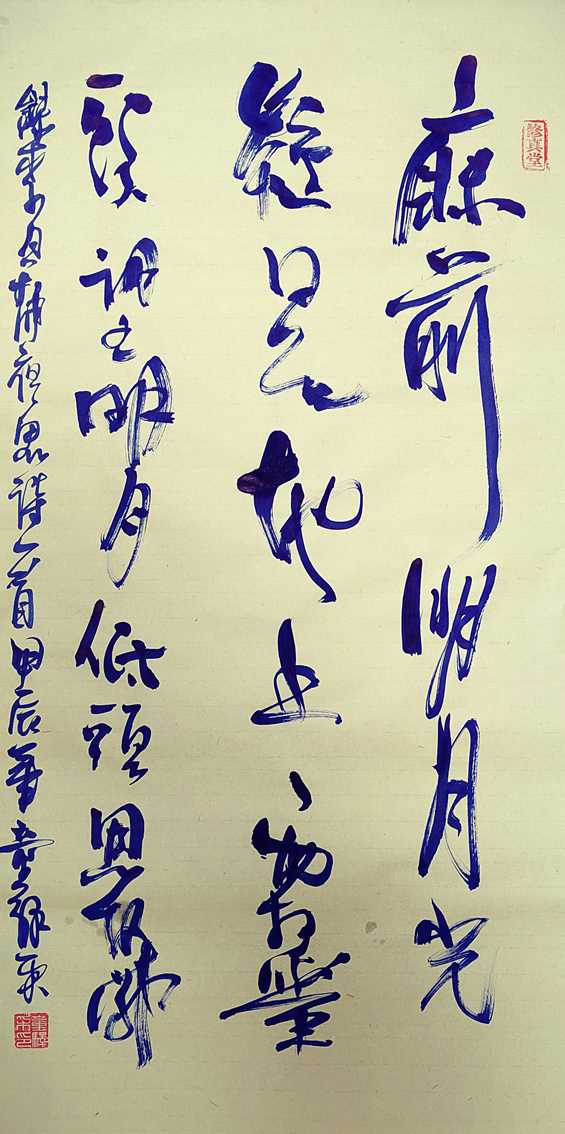 真堂
床前明月光
疑是地上霜舉
頭望明月低頭思故鄉
錄李太白靜夜思詩一首甲辰